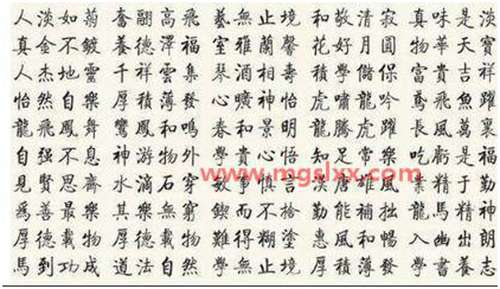 人淡如菊 奮翮高飛 藝無止境 和敬清寂 真味是淡
真金不鍍 養德澤福 室雅蘭馨 花好月圓 物華天寶
人杰地靈 千祥雲集 琴酒相壽 積學儲 富貴吉祥
怡然自樂 厚積薄發 心曠神怡 虎嘯龍吟 鳶飛魚躍
龍飛鳳舞 鸞鳳和鳴 春和景明 龍騰虎躍 長風萬裏
自强不息 神游物外 學貴心悟 知足常樂 吃虧是福
www.mgslxx.com
見賢思齋 水滴石穿 敏事慎言 漢唐雄風 業精于勤
為善最樂 其樂無窮 鍥而不捨 勤能補拙 龍馬精神
厚德載物 厚德載物 難得糊塗 惠風和暢 入幽出朗
馬到功成 道法自然 學無止境 厚積薄發 學書養志